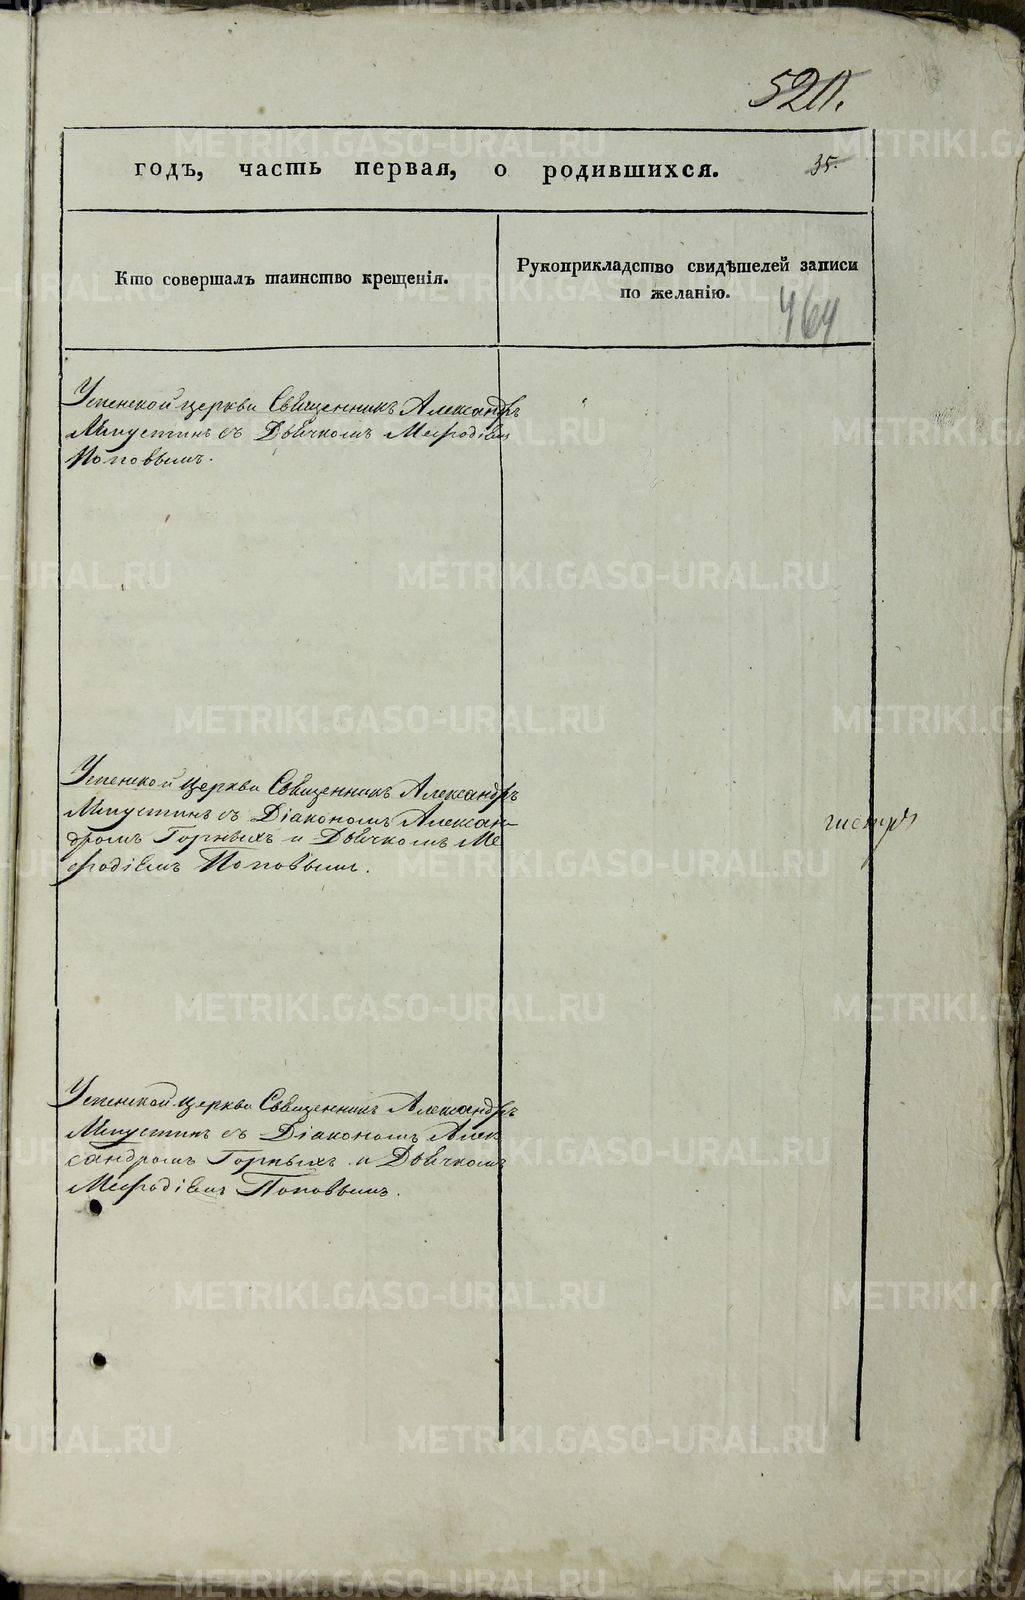 520.
годъ, часть первая, о родившихся.
35.
Кто совершалъ таинство крещенія.
Рукоприкладство свидѣтелей записи
по желанію.
464
Успенской церкви Священникъ Александръ
Мпустинъ съ Дьячкомъ Меѳодіемъ
Поповымъ.
Успенской церкви Священникъ Александръ
съ Діакономъ Алексан-
дромъ Горныхъ и Дьячкомъ Ме
ѳодіемъ Поповымъ.
Успенской церкви Священникъ Александръ
съ Діакономъ Алек
сандромъ Горныхъ и Дьячкомъ
Меѳодіемъ Поповымъ.
METRIKI.GASO-URAL.RU